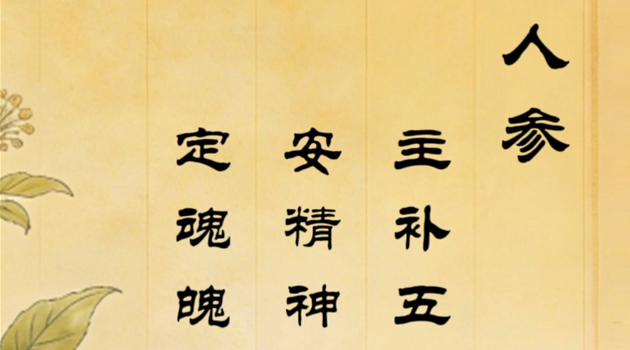 人参
主补五
安精神
定魂魄